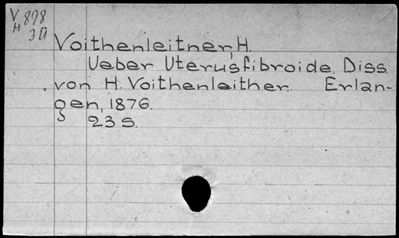 V 898
H
3a
Voithenleitner, H.
Ueber Uterusfibroide. Diss.
von H. Voithenleither Erlan-
gen, 1876.
23 s.